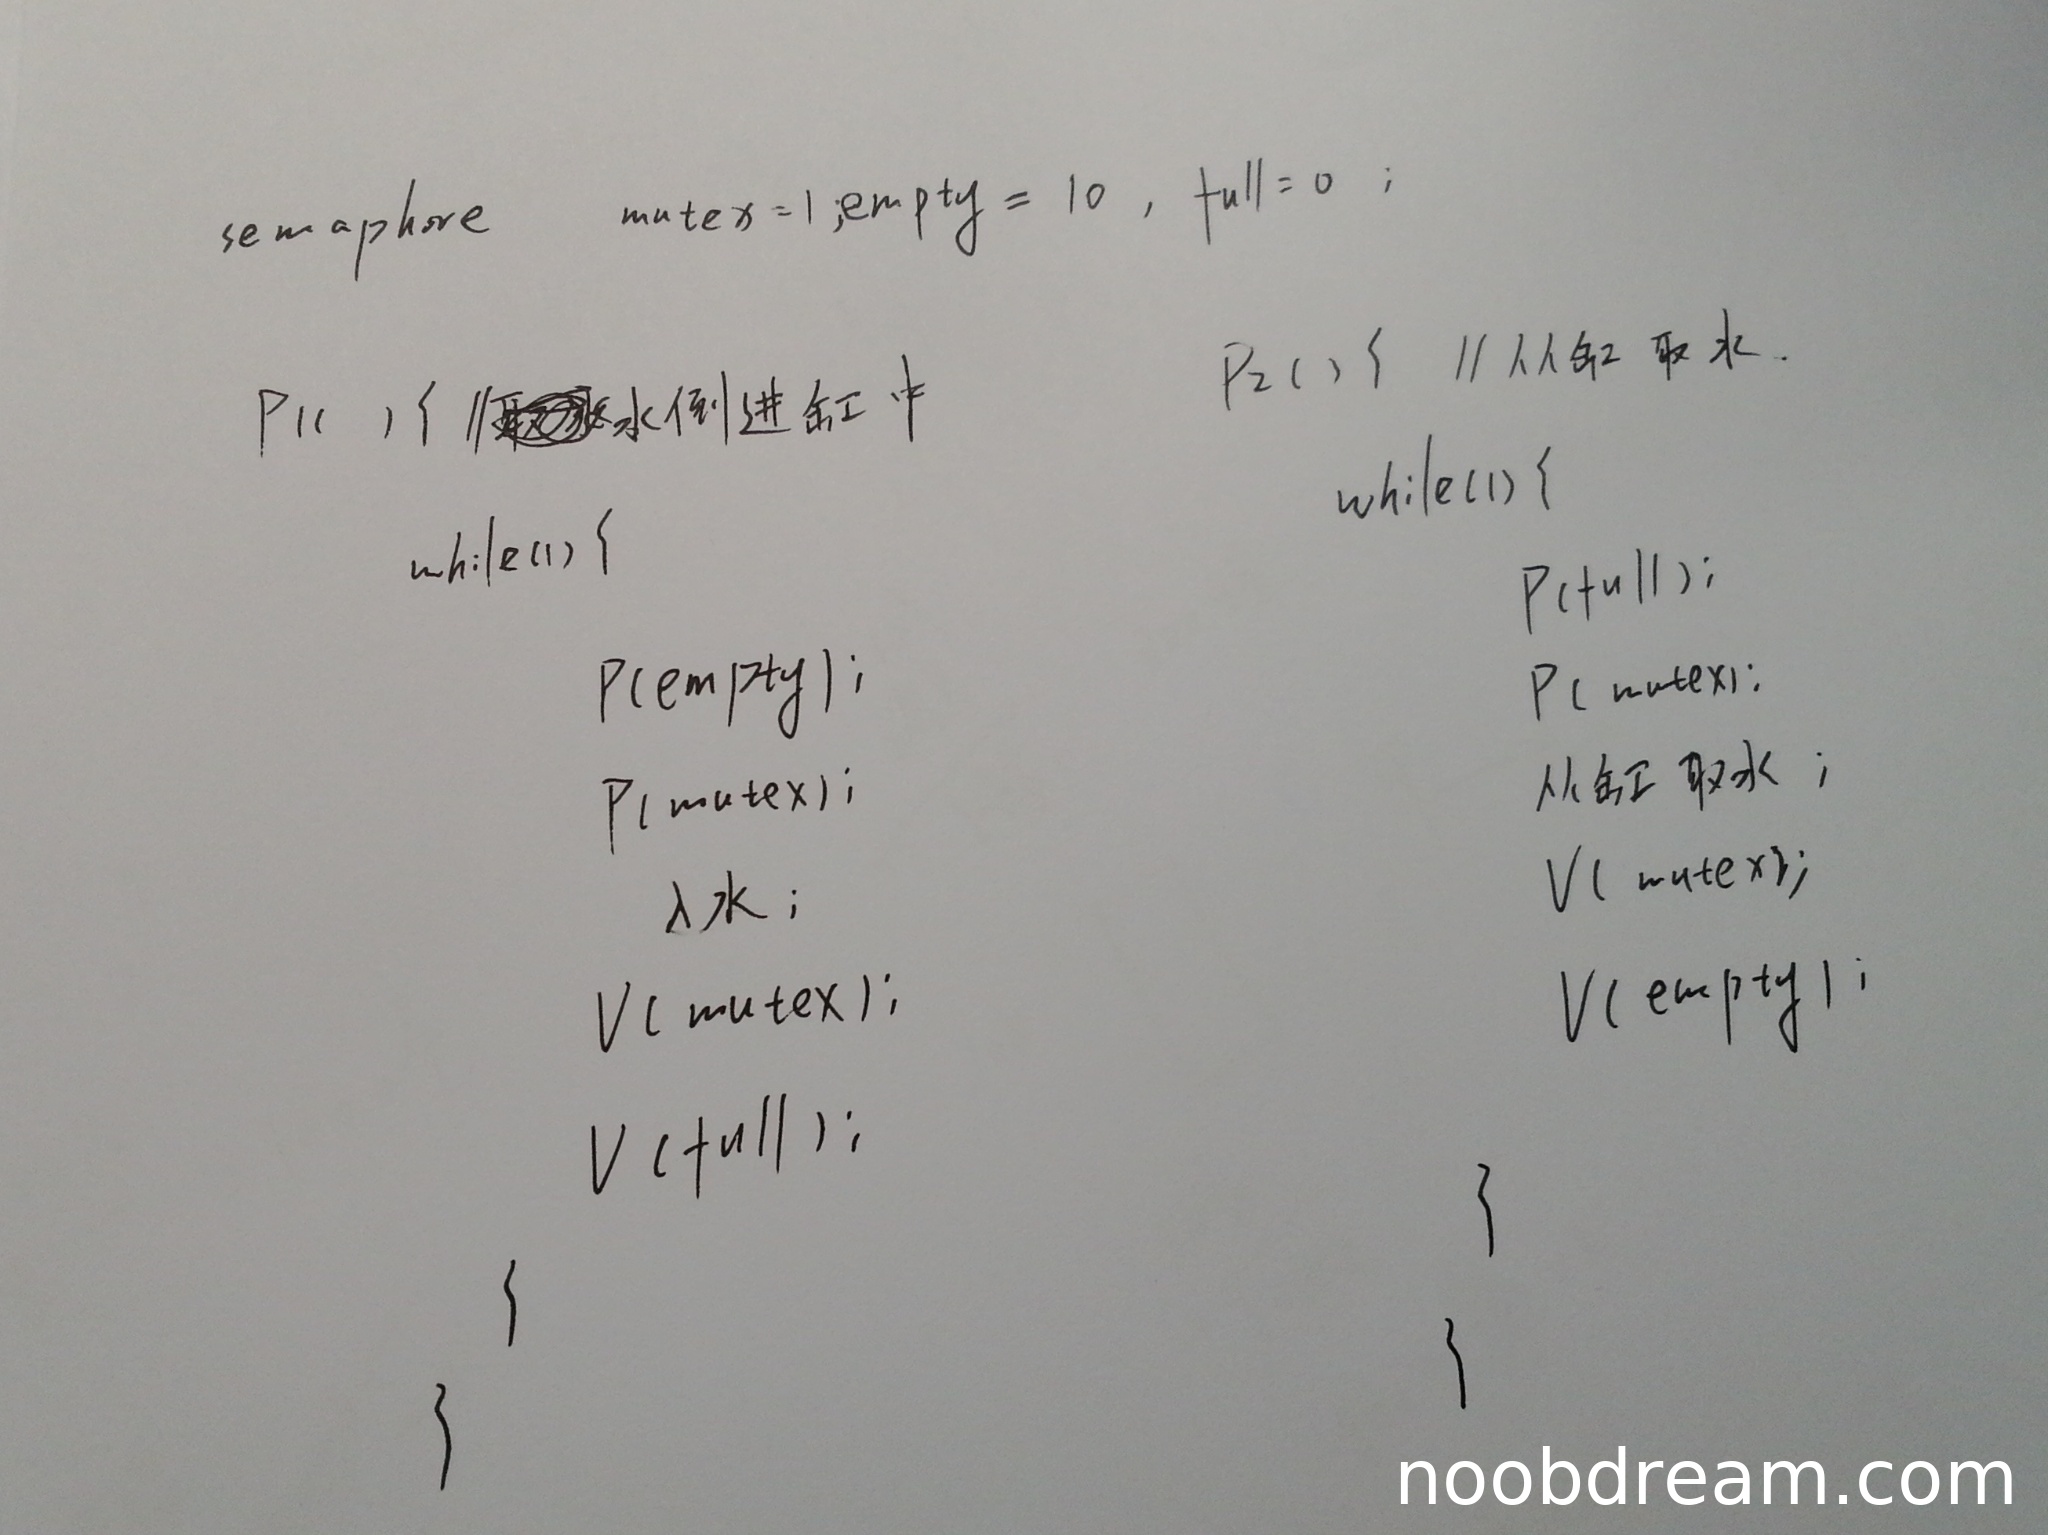 semaphore mutex=1;empty = 10, full=0;
P1( ){ //水倒进缸中
while(1){
P(empty);
P(mutex);
入水;
V(mutex);
V(full);
}
}
P2(){ //从缸取水.
while(1){
P(full);
P(mutex);
从缸取水;
V(mutex);
V(empty);
}
}
noobdream.com